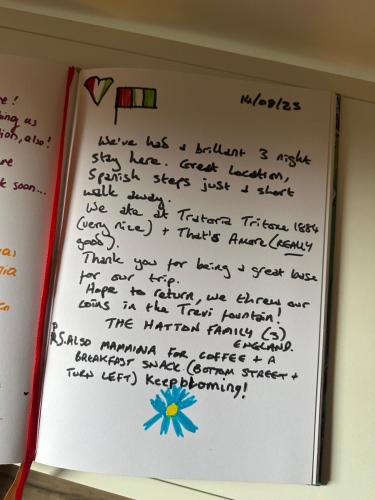 e!
ing as
tion, also!
re
k soon...
as
ia
en
14/08/25
We've had a brilliant 3 night
stay here. Great location,
Spanish steps just a short
walk away.
We ate at Tratoria Tritone 1884
(very nice) + That's Amore (REALLY
good).
Thank you for being a great base
for our trip.
Hope to return, we threw our
coins in the Trevi fountain!
THE HATTON FAMILY (3)
ENGLAND.
P.S. ALSO MAMMINA FOR COFFEE + A
BREAKFAST SNACK (BOTTOM STREET +
TURN LEFT) Keep blooming!